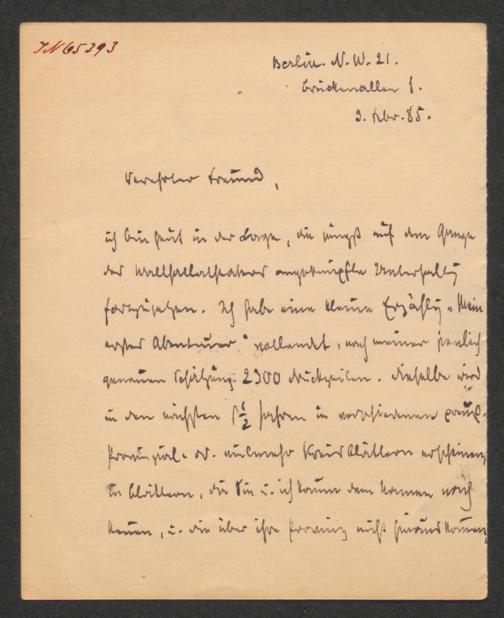 JN 65393
Berlin. N. W. 21.
Brückenallee 1.
3. Febr. 85.
Verehrter Freund,
ich bin heut in der Lage, die jüngst auf dem Gange
des Wallhallatheaters angeknüpfte Unterhaltg
fortzusetzen. Ich habe eine kleine Erzählg „Mein
erstes Abenteuer" vollendet, nach meiner ziemlich
genauen Schätzung 2300 Druckzeilen. Dieselbe wird
in den nächsten 1/2 Jahren in verschiedenen preuß.
Provinzial- od. vielmehr Kreisblättern erscheinen,
in Blättern, die Sie u. ich kaum dem Namen nach
kennen, u. die über ihre Provinz nicht hinauskommen,